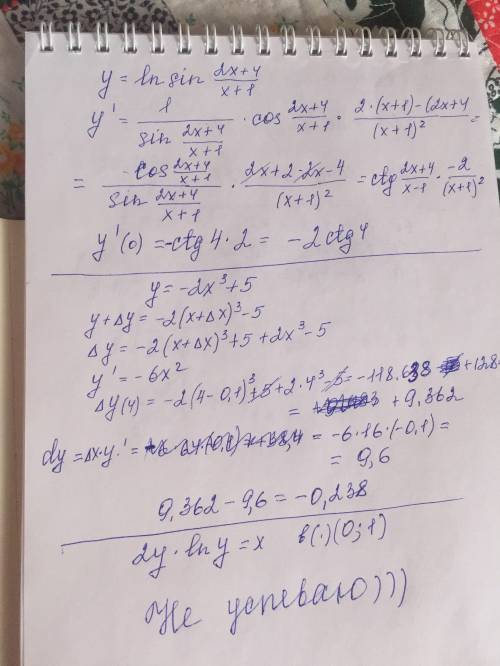 y = ln sin (2x+4)/(x+1)
y' = 1/(sin (2x+4)/(x+1)) · cos (2x+4)/(x+1) · (2·(x+1)-(2x+4)/(x+1)² =
= (cos (2x+4)/(x+1))/(sin (2x+4)/(x+1)) · (2x+2-2x-4)/(x+1)² = ctg (2x+4)/(x-1) · -2/(x+1)²
y'(0) = -ctg 4·2 = -2ctg4
y = -2x³+5
y+Δy = -2(x+Δx)³-5
Δy = -2(x+Δx)³+5+2x³-5
y' = -6x²
Δy(4) = -2(4-0,1)³+5+2·4³-5 = -118.638 +128
= +9,362
dy = Δx·y' = = -6·16·(-0,1) =
= 9,6
9,362-9,6 = -0,238
2y·ln y = x в(·)(0;1)
Не успеваю)))